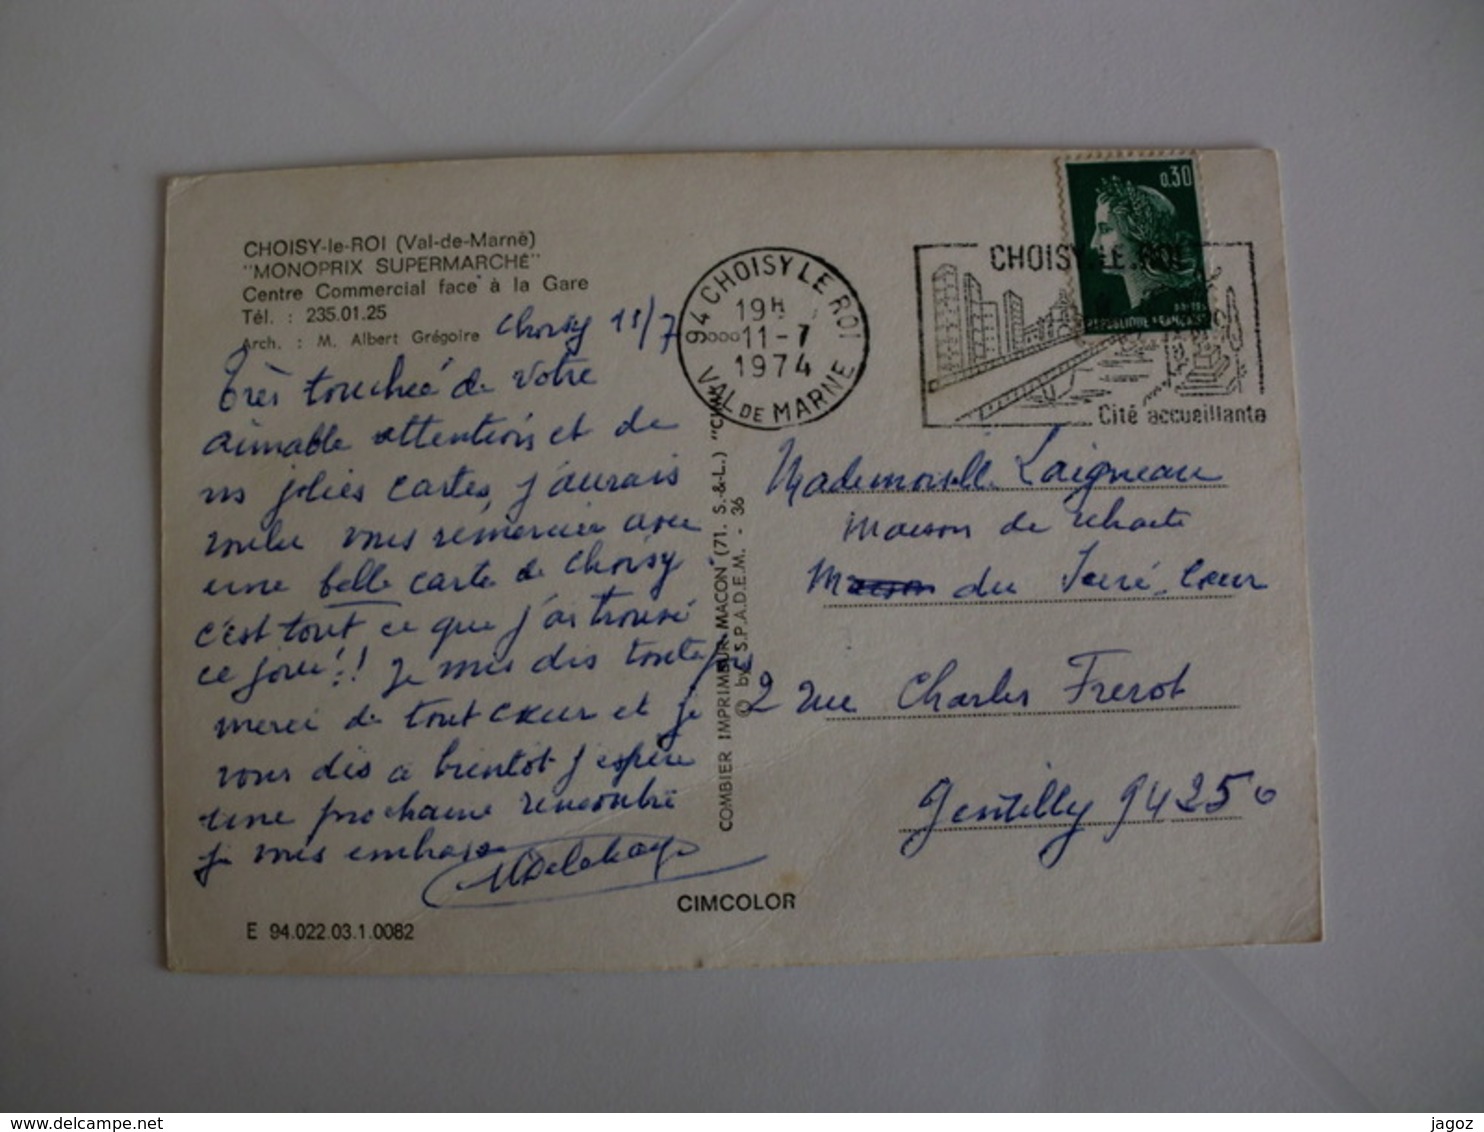 CHOISY-le-ROI (Val-de-Marne)
"MONOPRIX SUPERMARCHÉ"
Centre Commercial face à la Gare
Tél. : 235.01.25
Arch. : M. Albert Grégoire
Choisy 11/7
très touchée de votre
aimable attention et de
vos jolies cartes, j'aurais
voulu vous remercier avec
une belle carte de Choisy
c'est tout ce que j'ai trouvé
ce jour!! je vous dis toute
merci de tout cœur et je
vous dis à bientôt j'espère
une prochaine rencontre
je vous embrasse
94 CHOISY LE ROI
19H
11-7
1974
VAL DE MARNE
0,30
REPUBLIQUE FRANÇAISE
CHOISY-LE-ROI
Cité accueillante
Mademoiselle Laigneau
Maison de retraite
Maison du Sacré-Cœur
2 rue Charles Frerot
Gentilly 94250
COMBIER IMPRIMEUR MACON (71. S.-&-L.) "CIM"
© by S.P.A.D.E.M. - 36
CIMCOLOR
E 94.022.03.1.0082
delcampe.net
jagoz